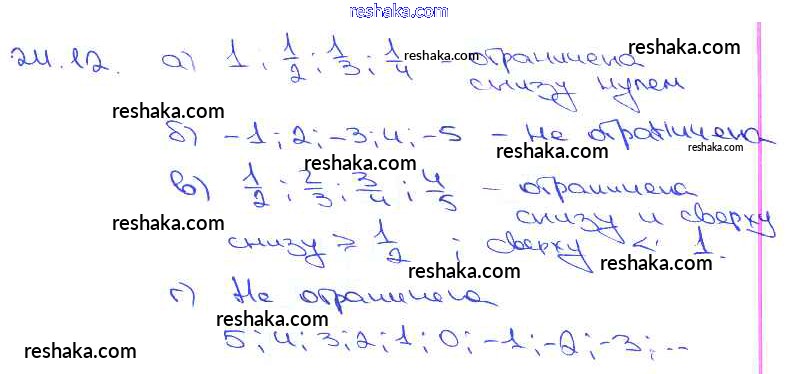 reshaka.com
24.12. а) 1; 1/2; 1/3; 1/4 - ограничена reshaka.com reshaka.com
снизу нулем
reshaka.com
б) -1; 2; -3; 4; -5 - не ограничена reshaka.com reshaka.com
reshaka.com
в) 1/2; 2/3; 3/4; 4/5 - ограничена
reshaka.com снизу и сверху
снизу ≥ 1/2 ; сверху < 1. reshaka.com
reshaka.com
г) Не ограничена reshaka.com
5; 4; 3; 2; 1; 0; -1; -2; -3; ...
reshaka.com reshaka.com